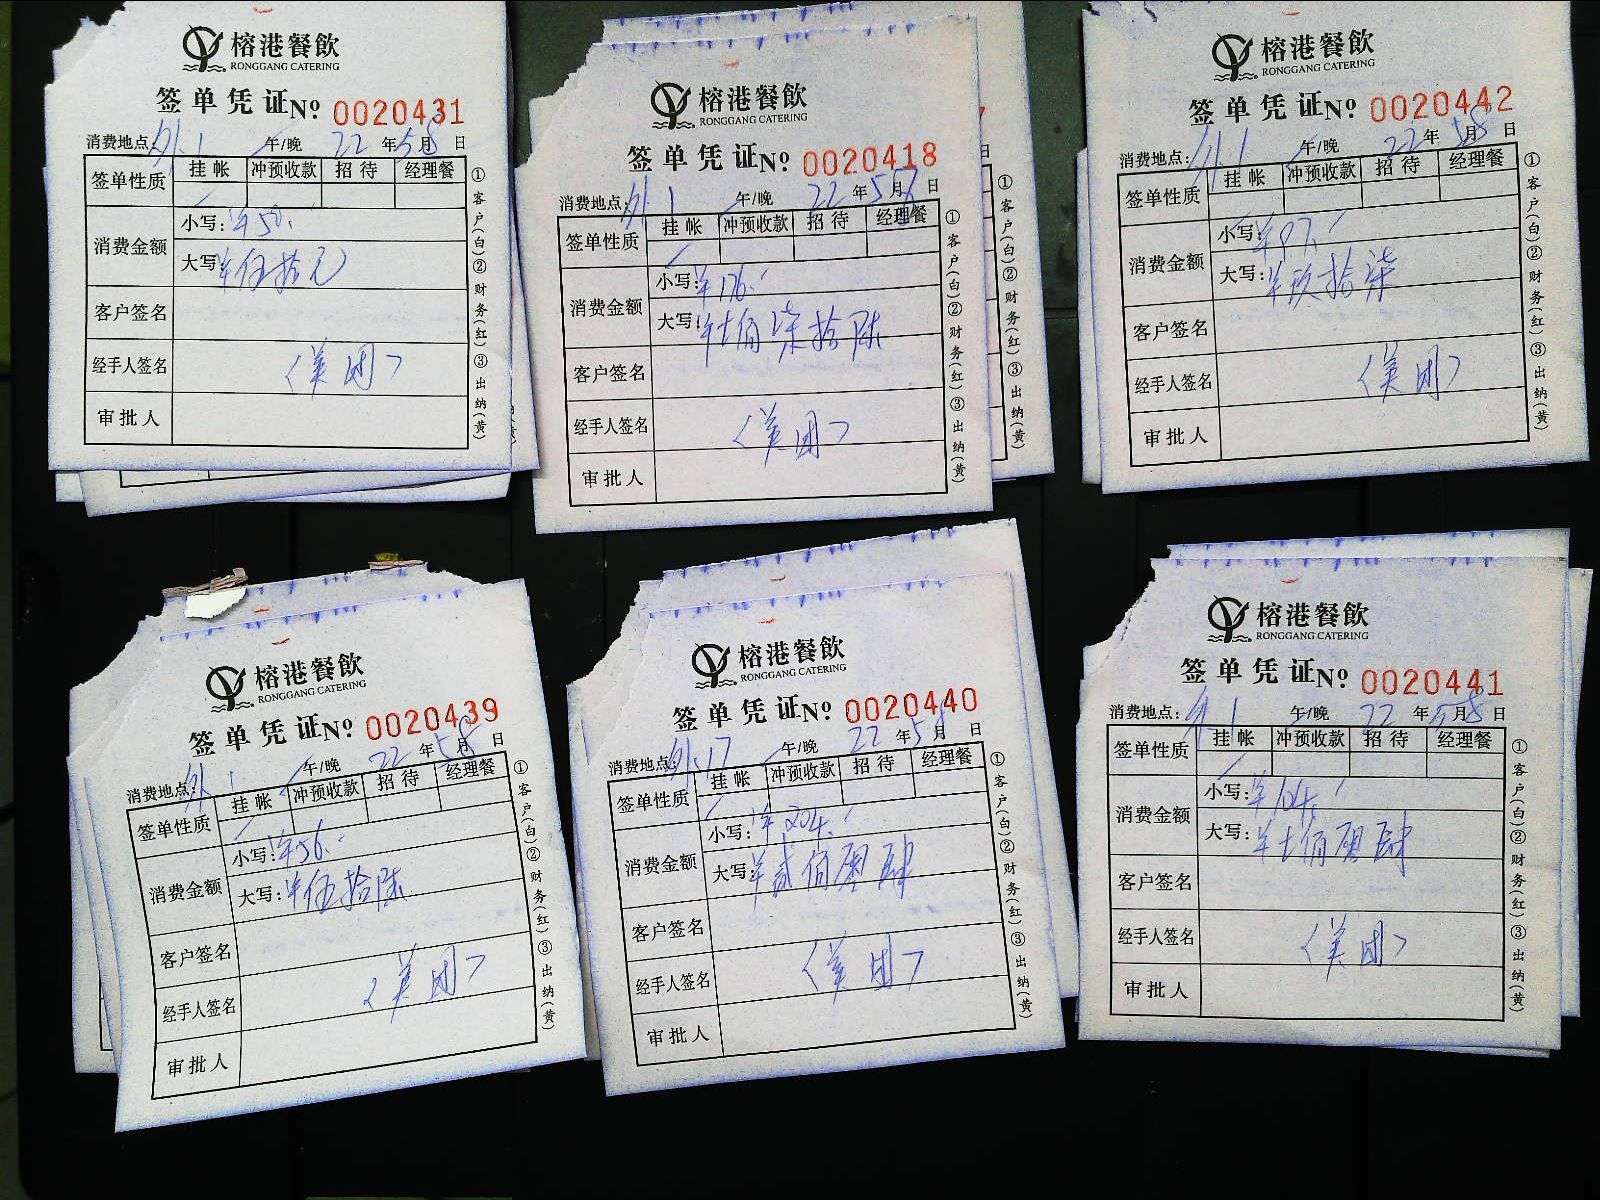 榕港餐飲
RONGGANG CATERING
签单凭证№ 0020431
消费地点:外1 午/晚 22年5月8日
签单性质 挂帐 冲预收款 招待 经理餐
消费金额
小写:¥50.-
大写:¥伍拾元
客户签名
经手人签名 〈美团〉
审批人
①客户(白)②财务(红)③出纳(黄)
榕港餐飲
RONGGANG CATERING
签单凭证№ 0020418
消费地点:外1 午/晚 22年5月7日
签单性质 挂帐 冲预收款 招待 经理餐
消费金额
小写:¥176.-
大写:¥壹佰柒拾陆
客户签名
经手人签名 〈美团〉
审批人
①客户(白)②财务(红)③出纳(黄)
①客户(白)②财务(红)③出纳(黄)
榕港餐飲
RONGGANG CATERING
签单凭证№ 0020442
消费地点:外1 午/晚 22年5月8日
签单性质 挂帐 冲预收款 招待 经理餐
消费金额
小写:¥97.-
大写:¥玖拾柒
客户签名
经手人签名 〈美团〉
审批人
①客户(白)②财务(红)③出纳(黄)
榕港餐飲
RONGGANG CATERING
签单凭证№ 0020439
消费地点:外1 午/晚 22年5月8日
签单性质 挂帐 冲预收款 招待 经理餐
消费金额
小写:¥56.-
大写:¥伍拾陆
客户签名
经手人签名 〈美团〉
审批人
①客户(白)②财务(红)③出纳(黄)
榕港餐飲
RONGGANG CATERING
签单凭证№ 0020440
消费地点:外17 午/晚 22年5月8日
签单性质 挂帐 冲预收款 招待 经理餐
消费金额
小写:¥204.-
大写:¥贰佰零肆
客户签名
经手人签名 〈美团〉
审批人
①客户(白)②财务(红)③出纳(黄)
榕港餐飲
RONGGANG CATERING
签单凭证№ 0020441
消费地点:外1 午/晚 22年5月8日
签单性质 挂帐 冲预收款 招待 经理餐
消费金额
小写:¥104.-
大写:¥壹佰零肆
客户签名
经手人签名 〈美团〉
审批人
①客户(白)②财务(红)③出纳(黄)